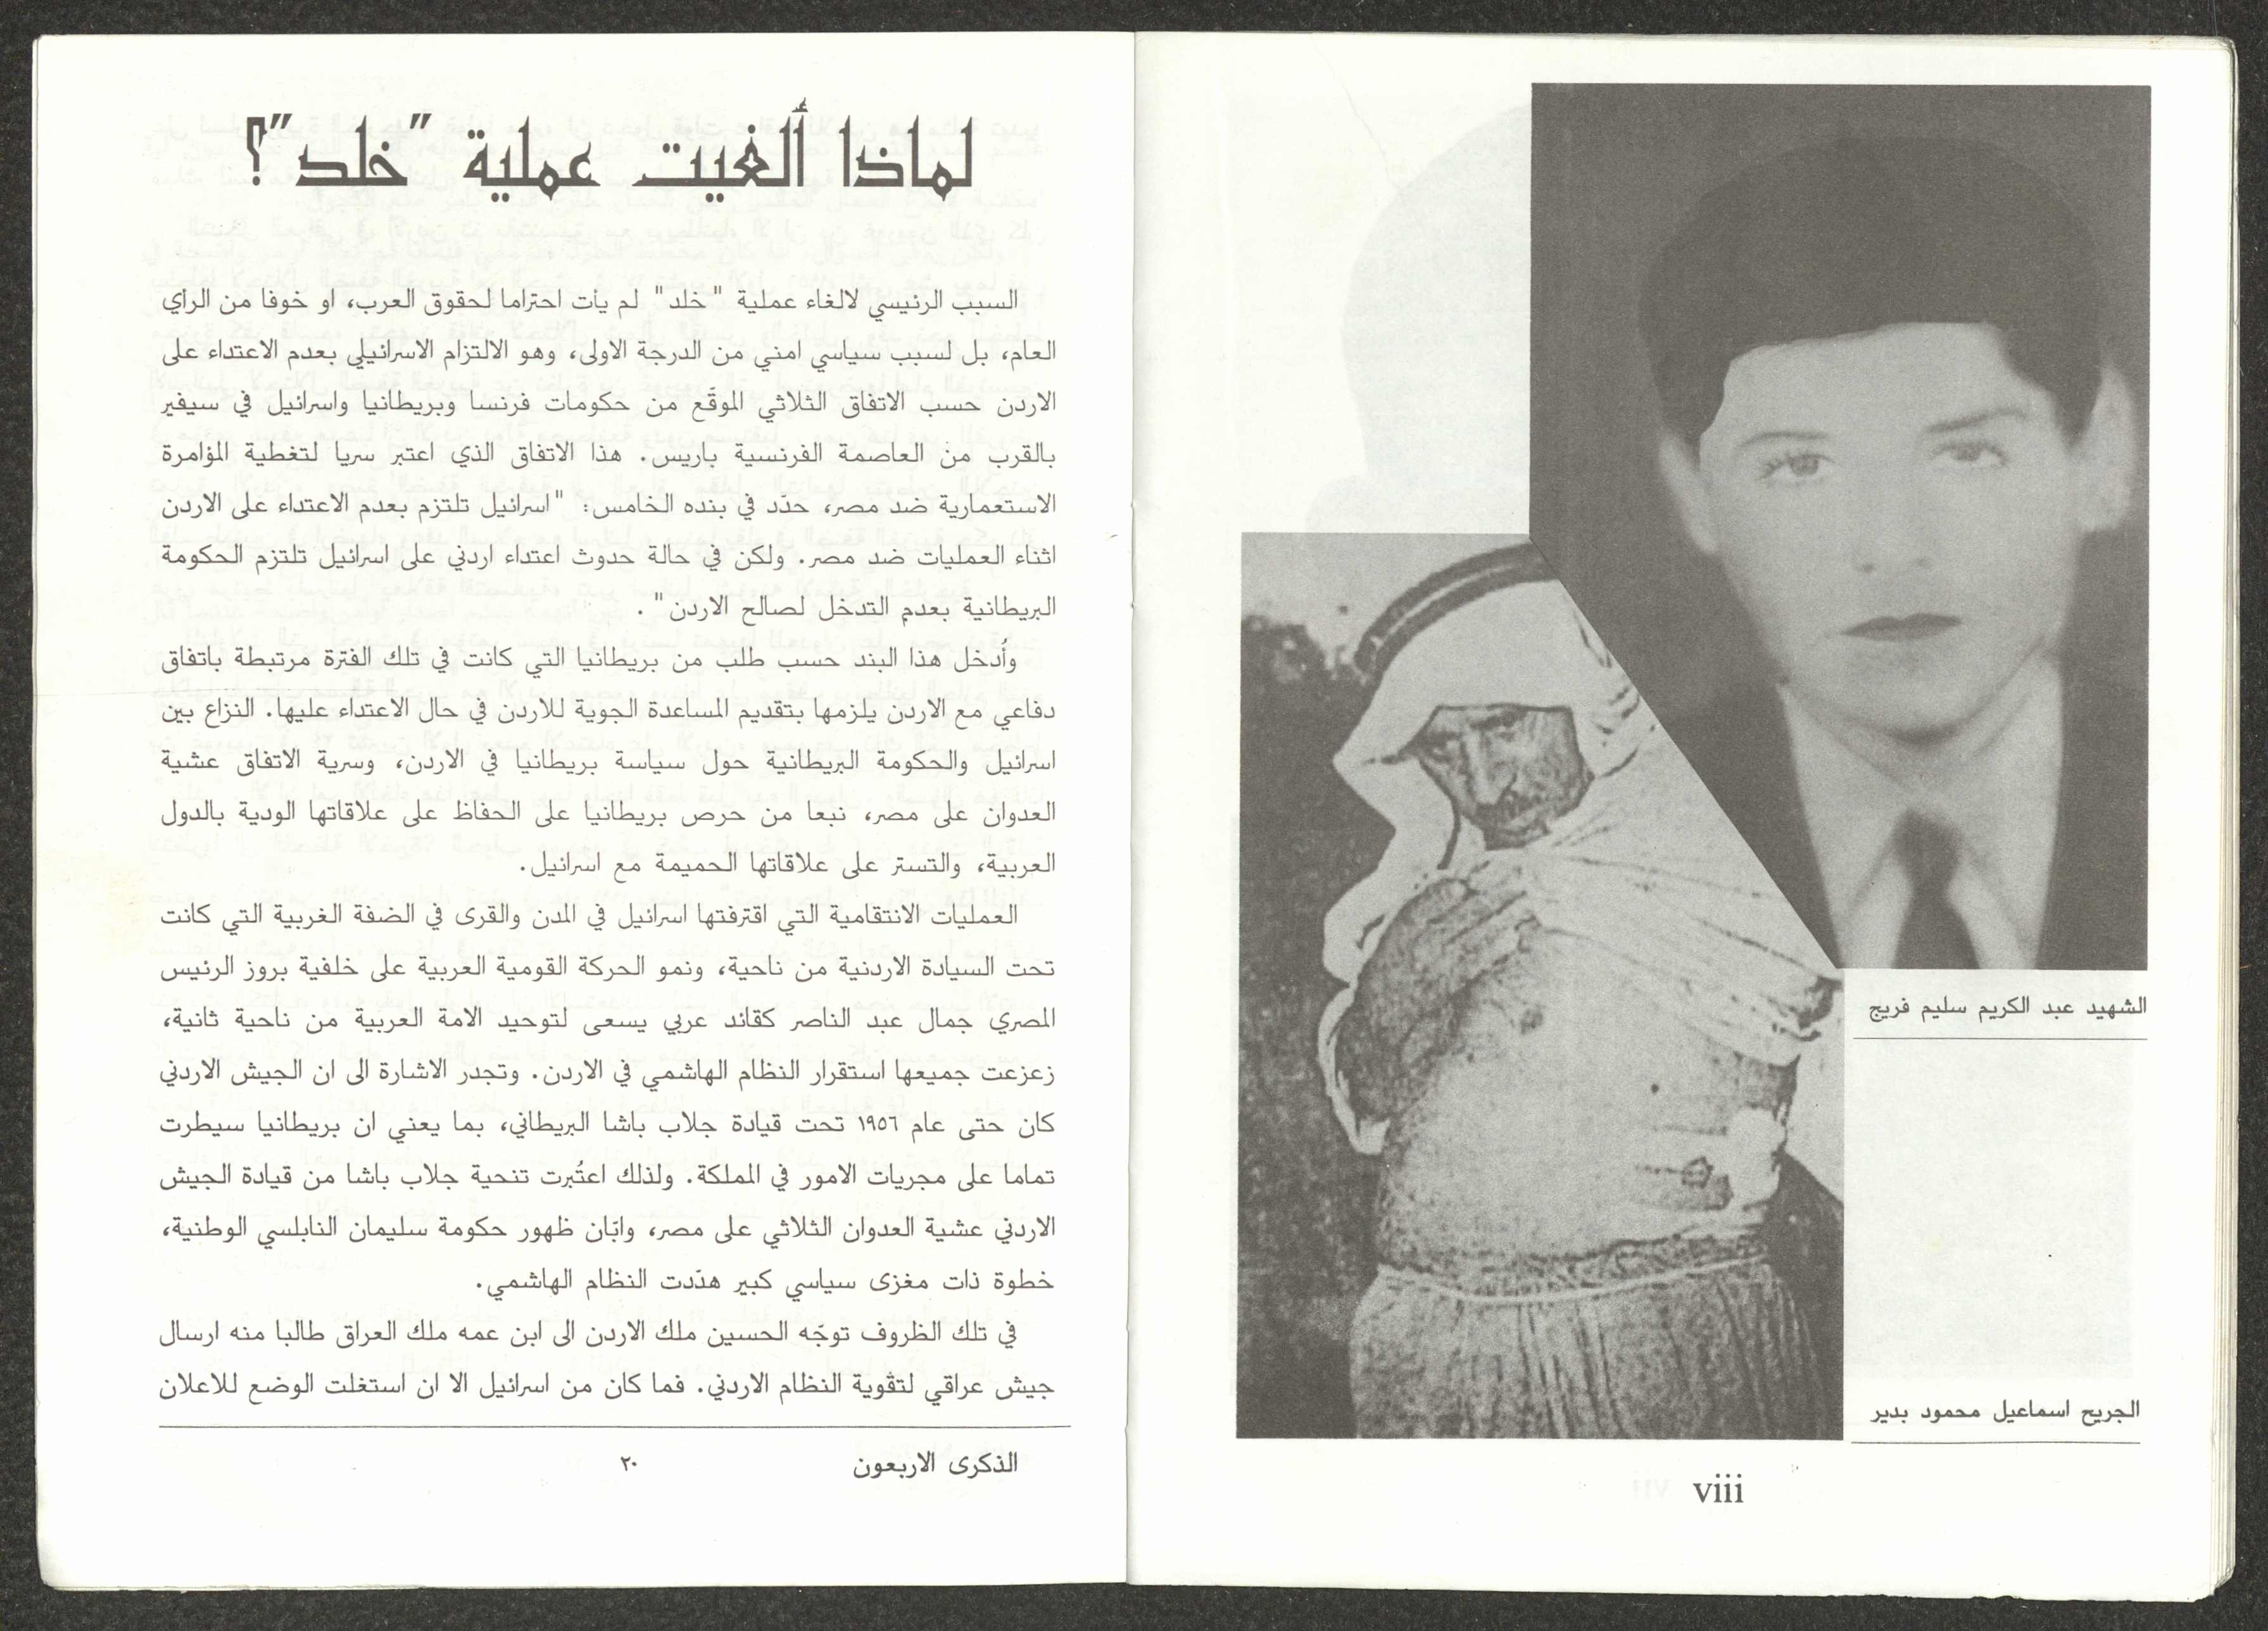 الشهيد عبد الكريم سليم فريج
الجريح اسماعيل محمود بدير
viii
لماذا ألغيت عملية "خلد"؟
السبب الرئيسي لالغاء عملية "خلد" لم يأت احتراما لحقوق العرب، او خوفا من الرأي
العام، بل لسبب سياسي امني من الدرجة الاولى، وهو الالتزام الاسرائيلي بعدم الاعتداء على
الاردن حسب الاتفاق الثلاثي الموقّع من حكومات فرنسا وبريطانيا واسرائيل في سيفير
بالقرب من العاصمة الفرنسية باريس. هذا الاتفاق الذي اعتبر سريا لتغطية المؤامرة
الاستعمارية ضد مصر، حدّد في بنده الخامس: "اسرائيل تلتزم بعدم الاعتداء على الاردن
اثناء العمليات ضد مصر. ولكن في حالة حدوث اعتداء اردني على اسرائيل تلتزم الحكومة
البريطانية بعدم التدخل لصالح الاردن".
وأُدخل هذا البند حسب طلب من بريطانيا التي كانت في تلك الفترة مرتبطة باتفاق
دفاعي مع الاردن يلزمها بتقديم المساعدة الجوية للاردن في حال الاعتداء عليها. النزاع بين
اسرائيل والحكومة البريطانية حول سياسة بريطانيا في الاردن، وسرية الاتفاق عشية
العدوان على مصر، نبعا من حرص بريطانيا على الحفاظ على علاقاتها الودية بالدول
العربية، والتستر على علاقاتها الحميمة مع اسرائيل.
العمليات الانتقامية التي اقترفتها اسرائيل في المدن والقرى في الضفة الغربية التي كانت
تحت السيادة الاردنية من ناحية، ونمو الحركة القومية العربية على خلفية بروز الرئيس
المصري جمال عبد الناصر كقائد عربي يسعى لتوحيد الامة العربية من ناحية ثانية،
زعزعت جميعها استقرار النظام الهاشمي في الاردن. وتجدر الاشارة الى ان الجيش الاردني
كان حتى عام ١٩٥٦ تحت قيادة جلاب باشا البريطاني، بما يعني ان بريطانيا سيطرت
تماما على مجريات الامور في المملكة. ولذلك اعتُبرت تنحية جلاب باشا من قيادة الجيش
الاردني عشية العدوان الثلاثي على مصر، وابّان ظهور حكومة سليمان النابلسي الوطنية،
خطوة ذات مغزى سياسي كبير هدّدت النظام الهاشمي.
في تلك الظروف توجّه الحسين ملك الاردن الى ابن عمه ملك العراق طالبا منه ارسال
جيش عراقي لتقوية النظام الاردني. فما كان من اسرائيل الا ان استغلت الوضع للاعلان
الذكرى الاربعون ٢٠